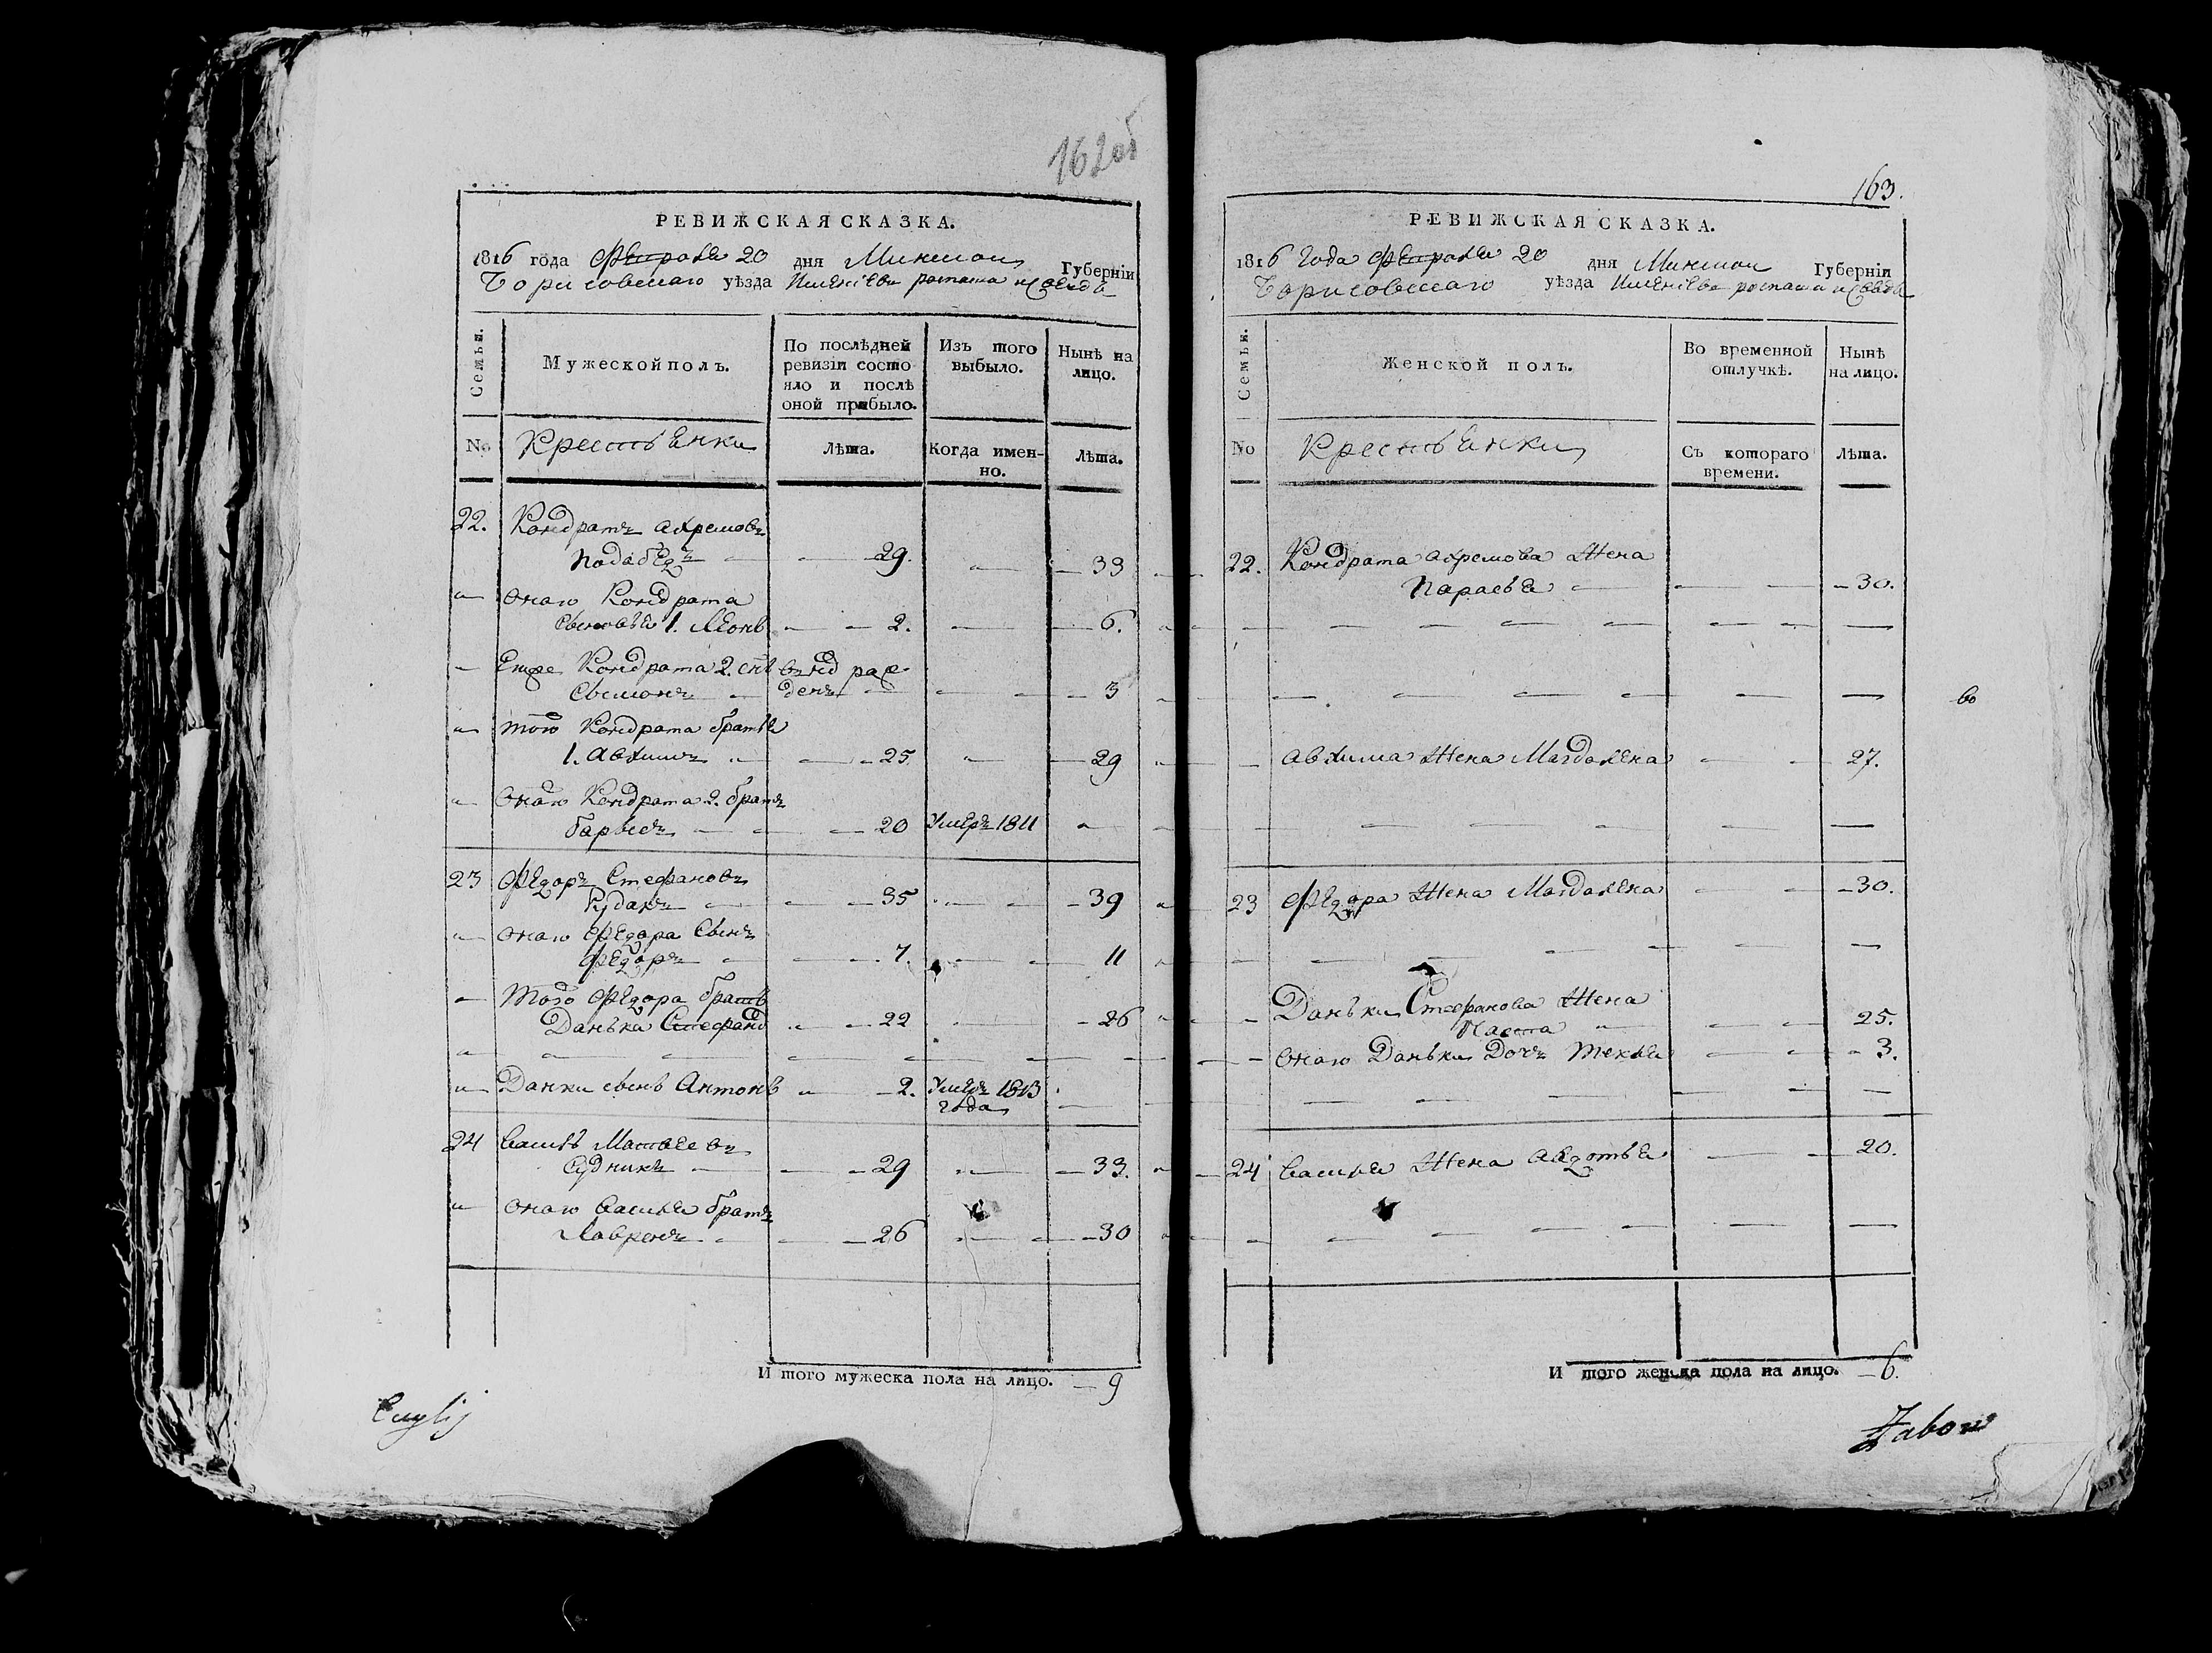 162об
РЕВИЖСКАЯ СКАЗКА.
1816 года Февраля 20 дня Минской Губерніи
Борисовскаго уѣзда Именіева
Семьи.
Мужеской полъ.
По послѣдней ревизіи состояло и послѣ оной прибыло.
Изъ того выбыло.
Нынѣ на лицо.
No
Крестьенки
Лѣта.
Когда именно.
Лѣта.
22. Кондратъ Ахремовъ
— 29. — — 33
онаго Кондрата
Сыновья 1. Леонъ — 2. — 6.
Еще Кондрата 2. снъ рож
Сымонъ — денъ — — 3
того Кондрата братья
1. Авхимъ — 25. — 29
Онаго Кондрата 2. братъ
барысъ — — 20 Умеръ 1811
23 Федоръ Стефановъ
Рудакъ — 35 — 39
онаго Федора Сынъ
Федоръ — 7. — 11
Того Федора братъ
Данька Стефанов — 22 — 26
Данки сынъ Антонъ — 2. Умеръ 1813
года
24 Василь Матвеевъ
Судникъ — 29 — 33.
онаго Василья братъ
Лавренъ — 26 — 30
И того мужеска пола на лицо. — 9
163.
РЕВИЖСКАЯ СКАЗКА.
1816 Года Февраля 20 дня Минской Губерніи
Борисовскаго уѣзда Именіева
Семьи.
Женской полъ.
Во временной отлучкѣ.
Нынѣ на лицо.
No
Крестьенки
Съ котораго времени.
Лѣта.
22. Кондрата Ахремова Жена
Парасья — 30.
Авхима Жена Магдалена — 27.
23 Федора Жена Магдалена — 30.
Даньки Стефанова Жена
Наста — 25.
онаго Даньки Дочъ Текля — 3.
24 Василья Жена Авдотья — 20.
И того женска пола на лицо. — 6.